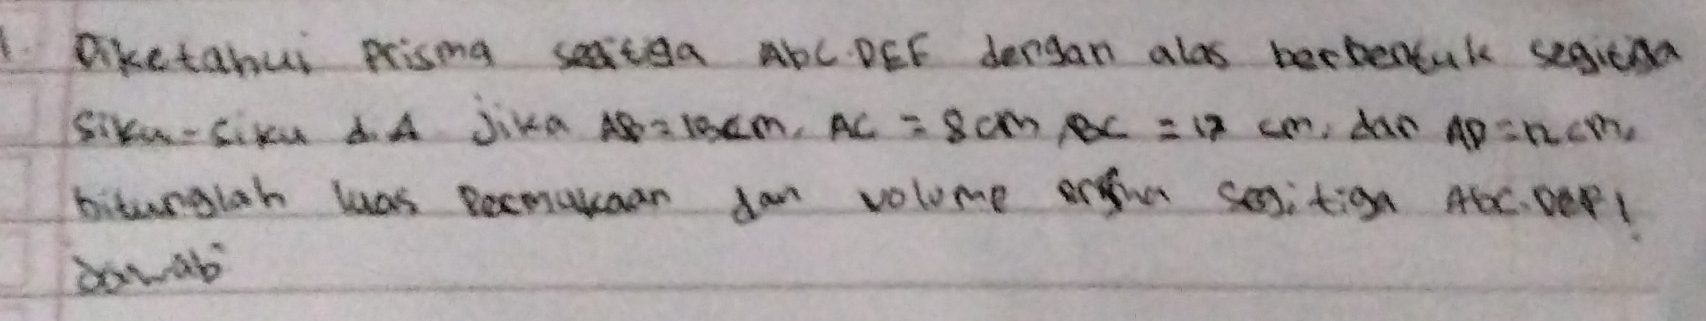 1. Diketahui Prisma segitiga ABC.DEF dengan alas berbentuk segitiga
siku-siku d. A Jika AB = 15 cm, AC = 8 cm, BC = 17 cm, dan AD = 12 cm.
hitunglah luas Permukaan dan volume segitiga ABC.DEF!
Jawab